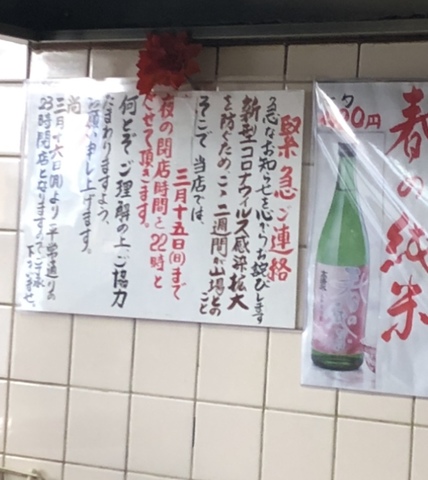 緊急ご連絡
急なお知らせを心からお詫びします
新型コロナウィルス感染拡大
を防ぐため、ここ二週間が山場とのこと
そこで当店では、
三月十五日(日)まで
夜の閉店時間を22時と
させて頂きます。
何とぞご理解の上ご協力
たまわりますよう、
お願い申し上げます。
尚
三月十六日(月)より平常通りの
23時閉店となりますのでご了承
下さいませ。
春の純米
00円